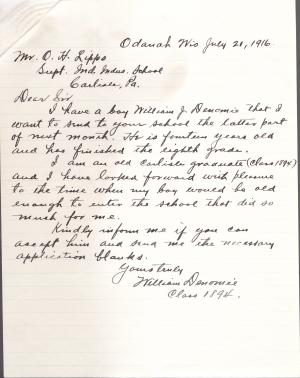 Odanah Wis July 21, 1916.
Mr. O. H. Lipps
Supt. Ind. Indus. School
Carlisle, Pa.
Dear Sir
I have a boy William J. Denomie that I
want to send to your school the latter part
of next month. He is fourteen years old
and has finished the eighth grade.
I am an old Carlisle graduate (Class 1894)
and I have looked forward with pleasure
to the time when my boy would be old
enough to enter the school that did so
much for me.
Kindly inform me if you can
accept him and send me the necessary
application blanks.
Yours truly
William Denomie
Class 1894.